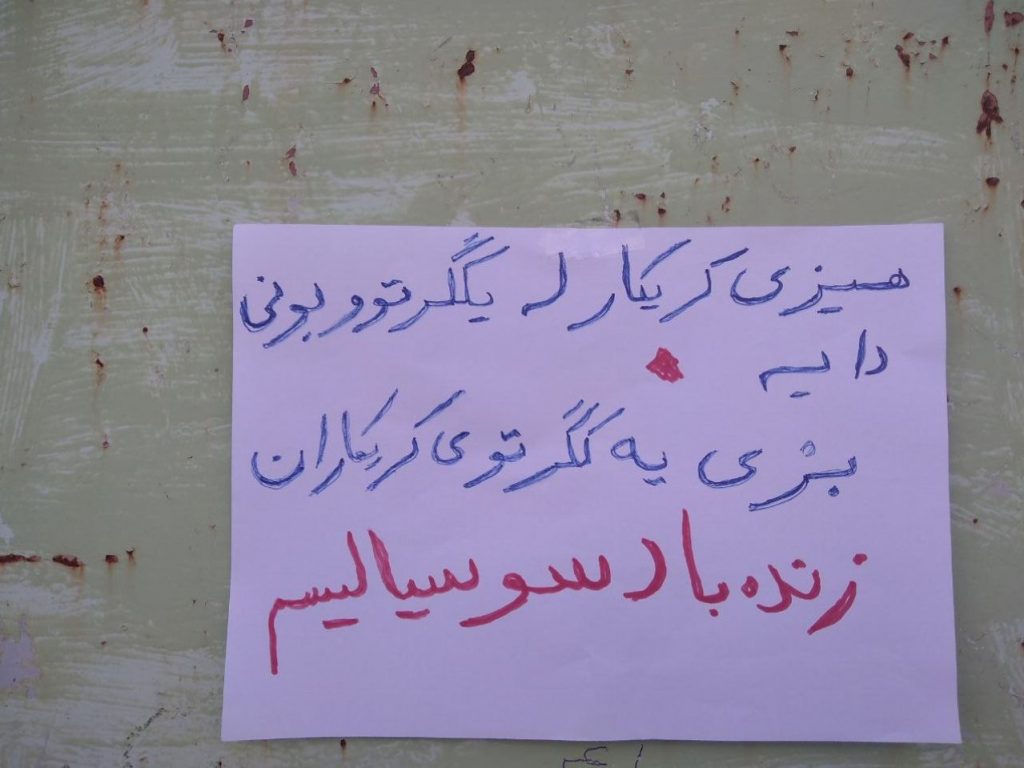 هیزی کریکار لە یگگرتوو بونی
دایە
بژی یە کگرتوی کریکاران
زندە باد سوسیالیسم